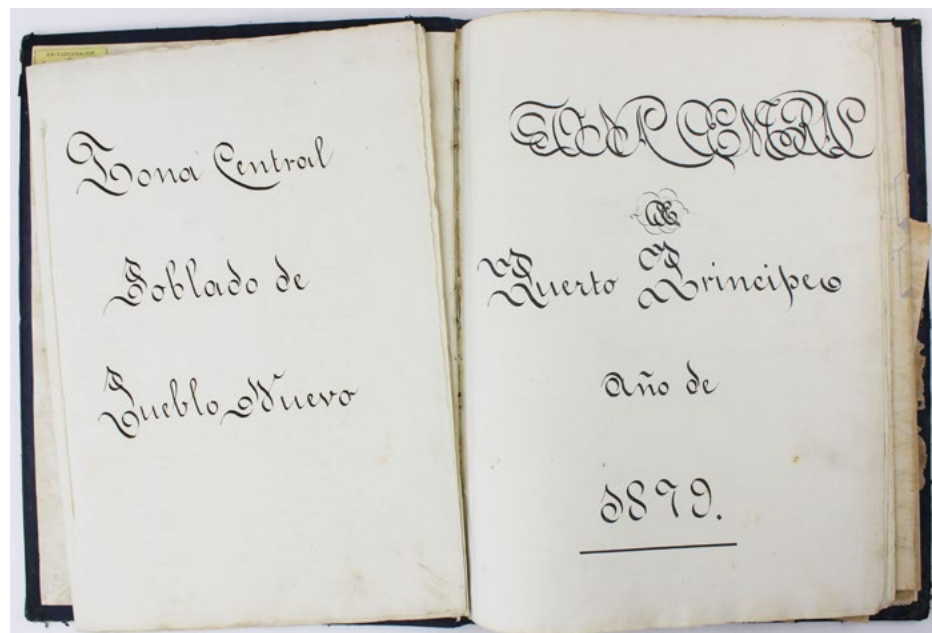 Zona Central
Poblado de
Pueblo Nuevo
ZONA CENTRAL
DE
Puerto Principe
Año de
1879.